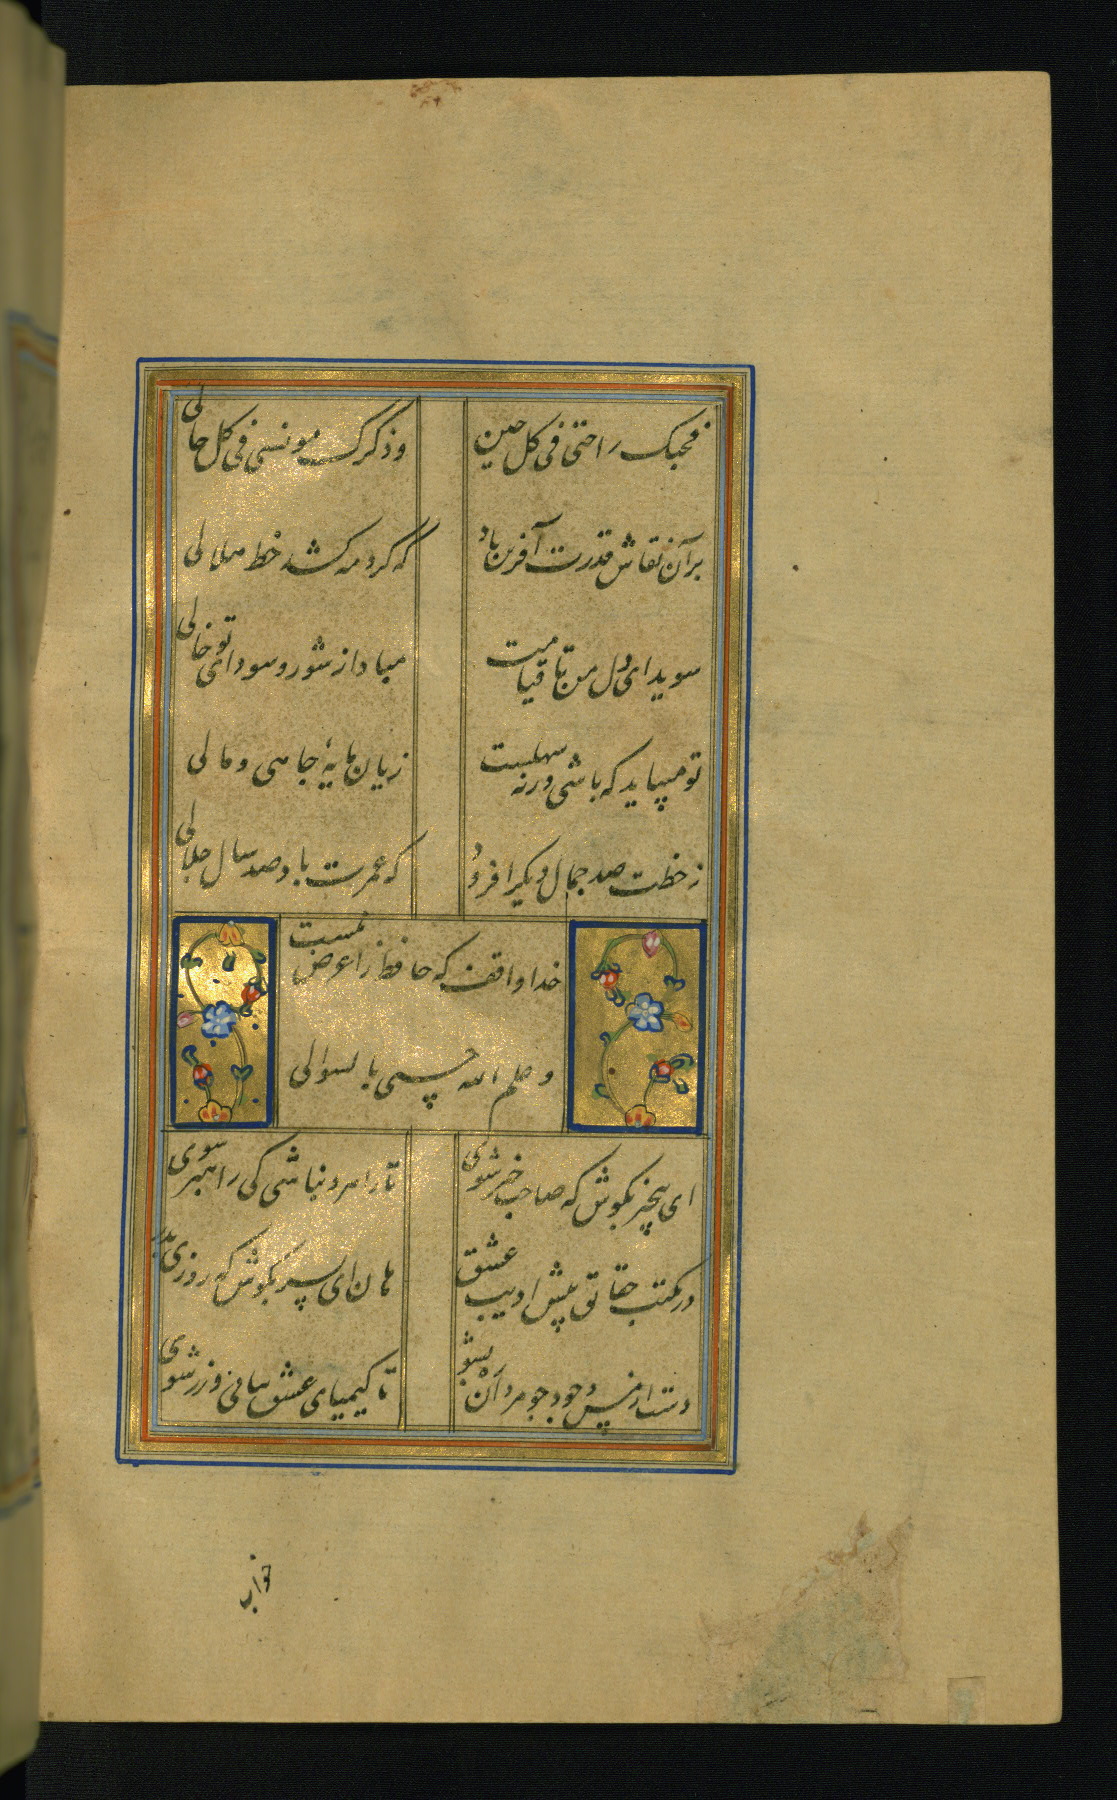 فحبک راحتی فی کل حین
وذکرک مونسی فی کل حالی
برآن نقاش قدرت آفرین باد
که کرد مه کشد خط هلالی
سویدای دل من تا قیامت
مباد از شور و سودای تو خالی
تو میباید که باشی ورنه سهلست
زیان مایهٔ جاهی و مالی
زخطت صد جمال دیکر افزود
که عمرت باد صد سال جلالی
خدا واقف که حافظ را غرض چیست
و علم الله حسبی با لسوالی
ای بیخبر بکوش که صاحب خبر شوی
تا راهرو نباشی کی راهبر شوی
در مکتب حقائق پیش ادیب عشق
هان ای پسر بکوش که روزی پدر
دست از مس وجود چو مردان ره بشو
تا کیمیای عشق بیابی و زر شوی
خواب